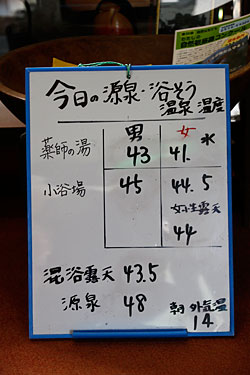 今日の源泉・浴そう
温泉温度
男 女
薬師の湯 43 41. 水
小浴場 45 44.5
女性露天
44
混浴露天 43.5
源泉 48 朝 外気温
14